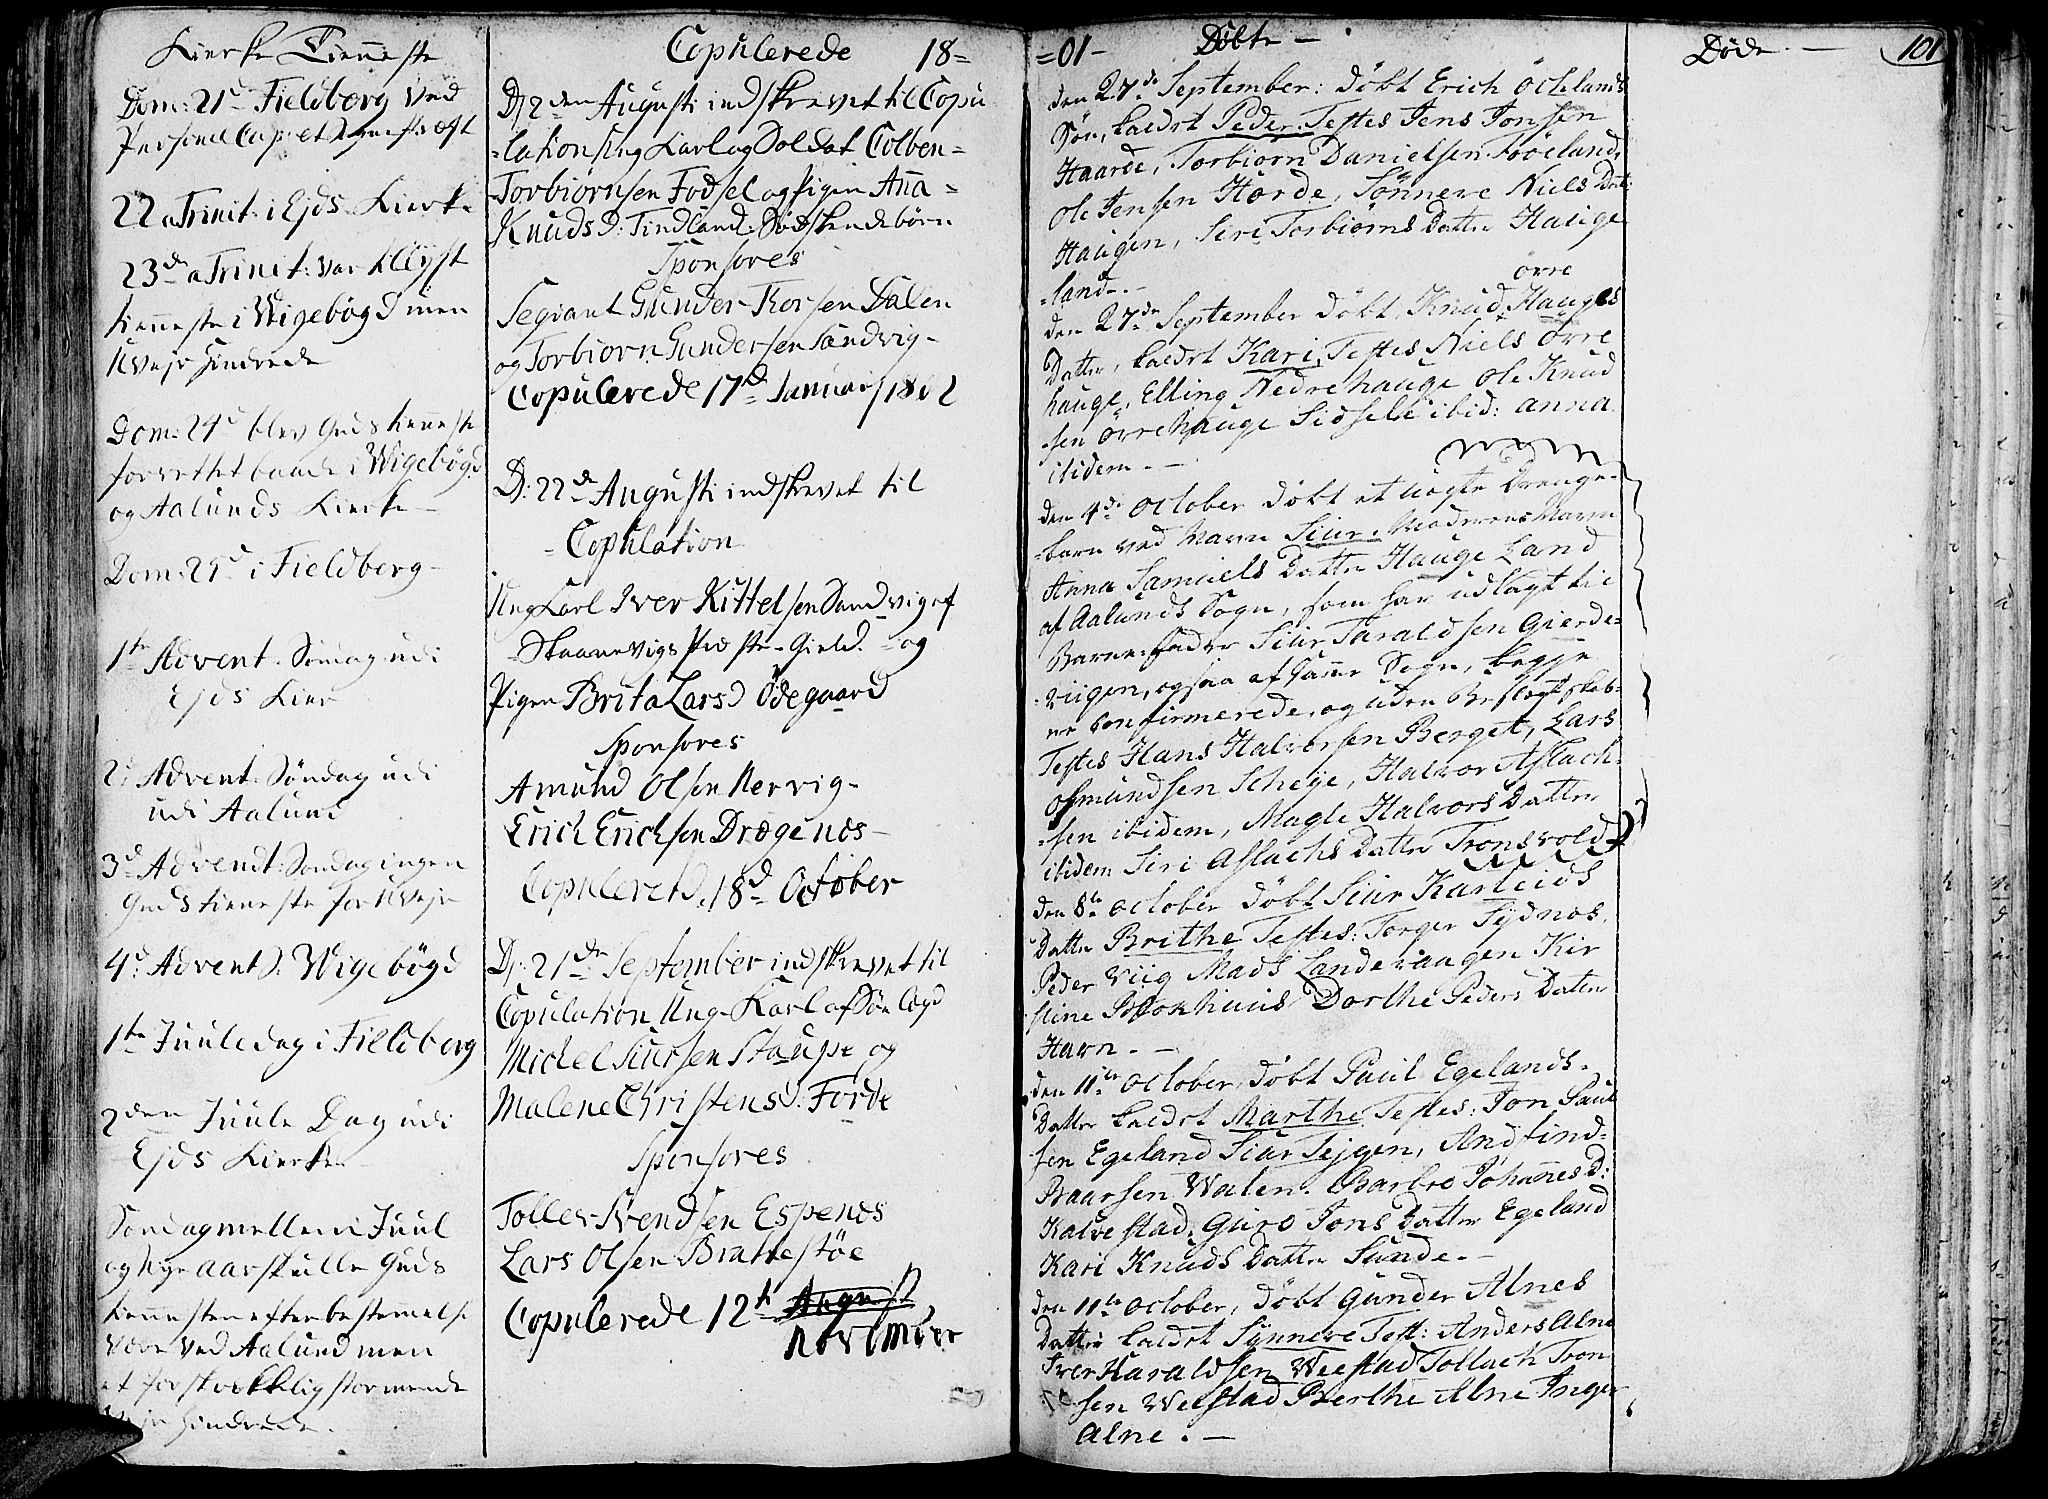 Kierke Tienneste
Dom: 21d Fieldberg ved
Personel Cap:
22 a Trinit: i Ejds Kierke
23de a Trinit: var Klÿft
tienneste i Wigebögd men
Uvejr hindrede
Dom: 24d blev Guds tienneste
forrettet baade i Wigebögd
og Aalunds Kierke -
Dom: 25d i Fieldberg -
1te Advent Söndag udi
Ejds Kier
2: Advent Söndag udi
udi Aalund
3d Advendt: Söndag ingen
Guds tienneste for Uvejr
4d Advent S: Wigebögd
1te Juule dag i Fieldberg
2den Juule Dag udi
Ejds Kierke
Söndag mellem Juul
og Nye aar skulle Guds
tiennesten efter bestemelse
være ved Aalund men
et forskrækkelig stormende
Vejr hindrede.
Copulerede 18=
D: 2den Augusti indskrevet til Copu
=lation Ung Karl og Soldat Colben=
Torbiörnsen Fodsel og Pigen Aña =
Knuds D: Tindland: Södskendebörn
Sponsores
Segiant Gunder Thorsen Dalen
og Torbiörn Gundersen Sandvig -
Copulerede 17d Januarj 1802
D: 22de Augusti indskrevet til
= Copulation
Ung Karl Iver Kittelsen Sandvig af
Skaanevigs Præste-Gield. - og
Pigen Brita Lars D Ödegaard
Sponsores
Amund Olsen Nervig -
Erich Erichsen Dragenæs -
Copuleret d. 18d October
D: 21de September indskrevet til
Copulation Ung Karl af Söe lægd
Michel Siursen Staupe og
Malene Christens D: Forde
Sponsores
Tollev Svendsen Espenæs
Lars Olsen Brattestöe
Copulerede 12te August
November
=01- Döbte -
den 27de September: döbt Erich Öchelands
Sön, kaldet Peder. Testes Jens Jonsen
Haarde, Torbiörn Danielsen Fröeland,
Ole Jensen Hörde, Sönneve Niels Dat:
Haugen, Siri Torbiörns Datter Hauge
=land. -
den 27de September döbt Knud örre Hauges
Datter, kaldet Kari, Testes Niels Örre
hauge, Elling Nedrehauge Ole Knud
=sen örrehauge Sidsele ibid: anna
ibidem. -
den 4de October döbt et uægte Drenge=
=barn ved Navn Siur. Moderens Navn
Anna Samuels Datter Hauge Land
af Aalunds Sogn, som har udlagt til
Barne=fader Siur Taraldsen Gierde=
viigen, ogsaa af Samme Sogn, begge
ere Confirmerede, og uden Besl gtskab.
Testes Hans Halvorsen Berget, Lars
Osmundsen Scheÿe, Halvor Aslach=
=sen ibidem, Magle Halvors Datter
ibidem Siri Aslachs Datter Tronsvold
den 8te October döbt Siur Karteids
Datter Brithe Testes: Torger Sydnæs,
Peder Viig Mads Landevaagen Kir
stine Blokhuus Dorthe Peders Datter
Havn. -
den 11te October, döbt Paul Egelands=
Datter kaldet Marthe Testes: Jon Paul
sen Egeland Siur Tejgen, Andfind=
Baarsen Walen. Barbro Johañes D:
Kalvestad, Guro Jons Datter Egeland
Kari Knuds Datter Sunde. -
den 11te October, döbt Gunder Alnes
Datter kaldet Synneve Test: Anders Alne
Iver Haraldsen Weestad Tollach Tron
=sen Weestad Berthe Alne Inger
Alne. -
Döde. - 101